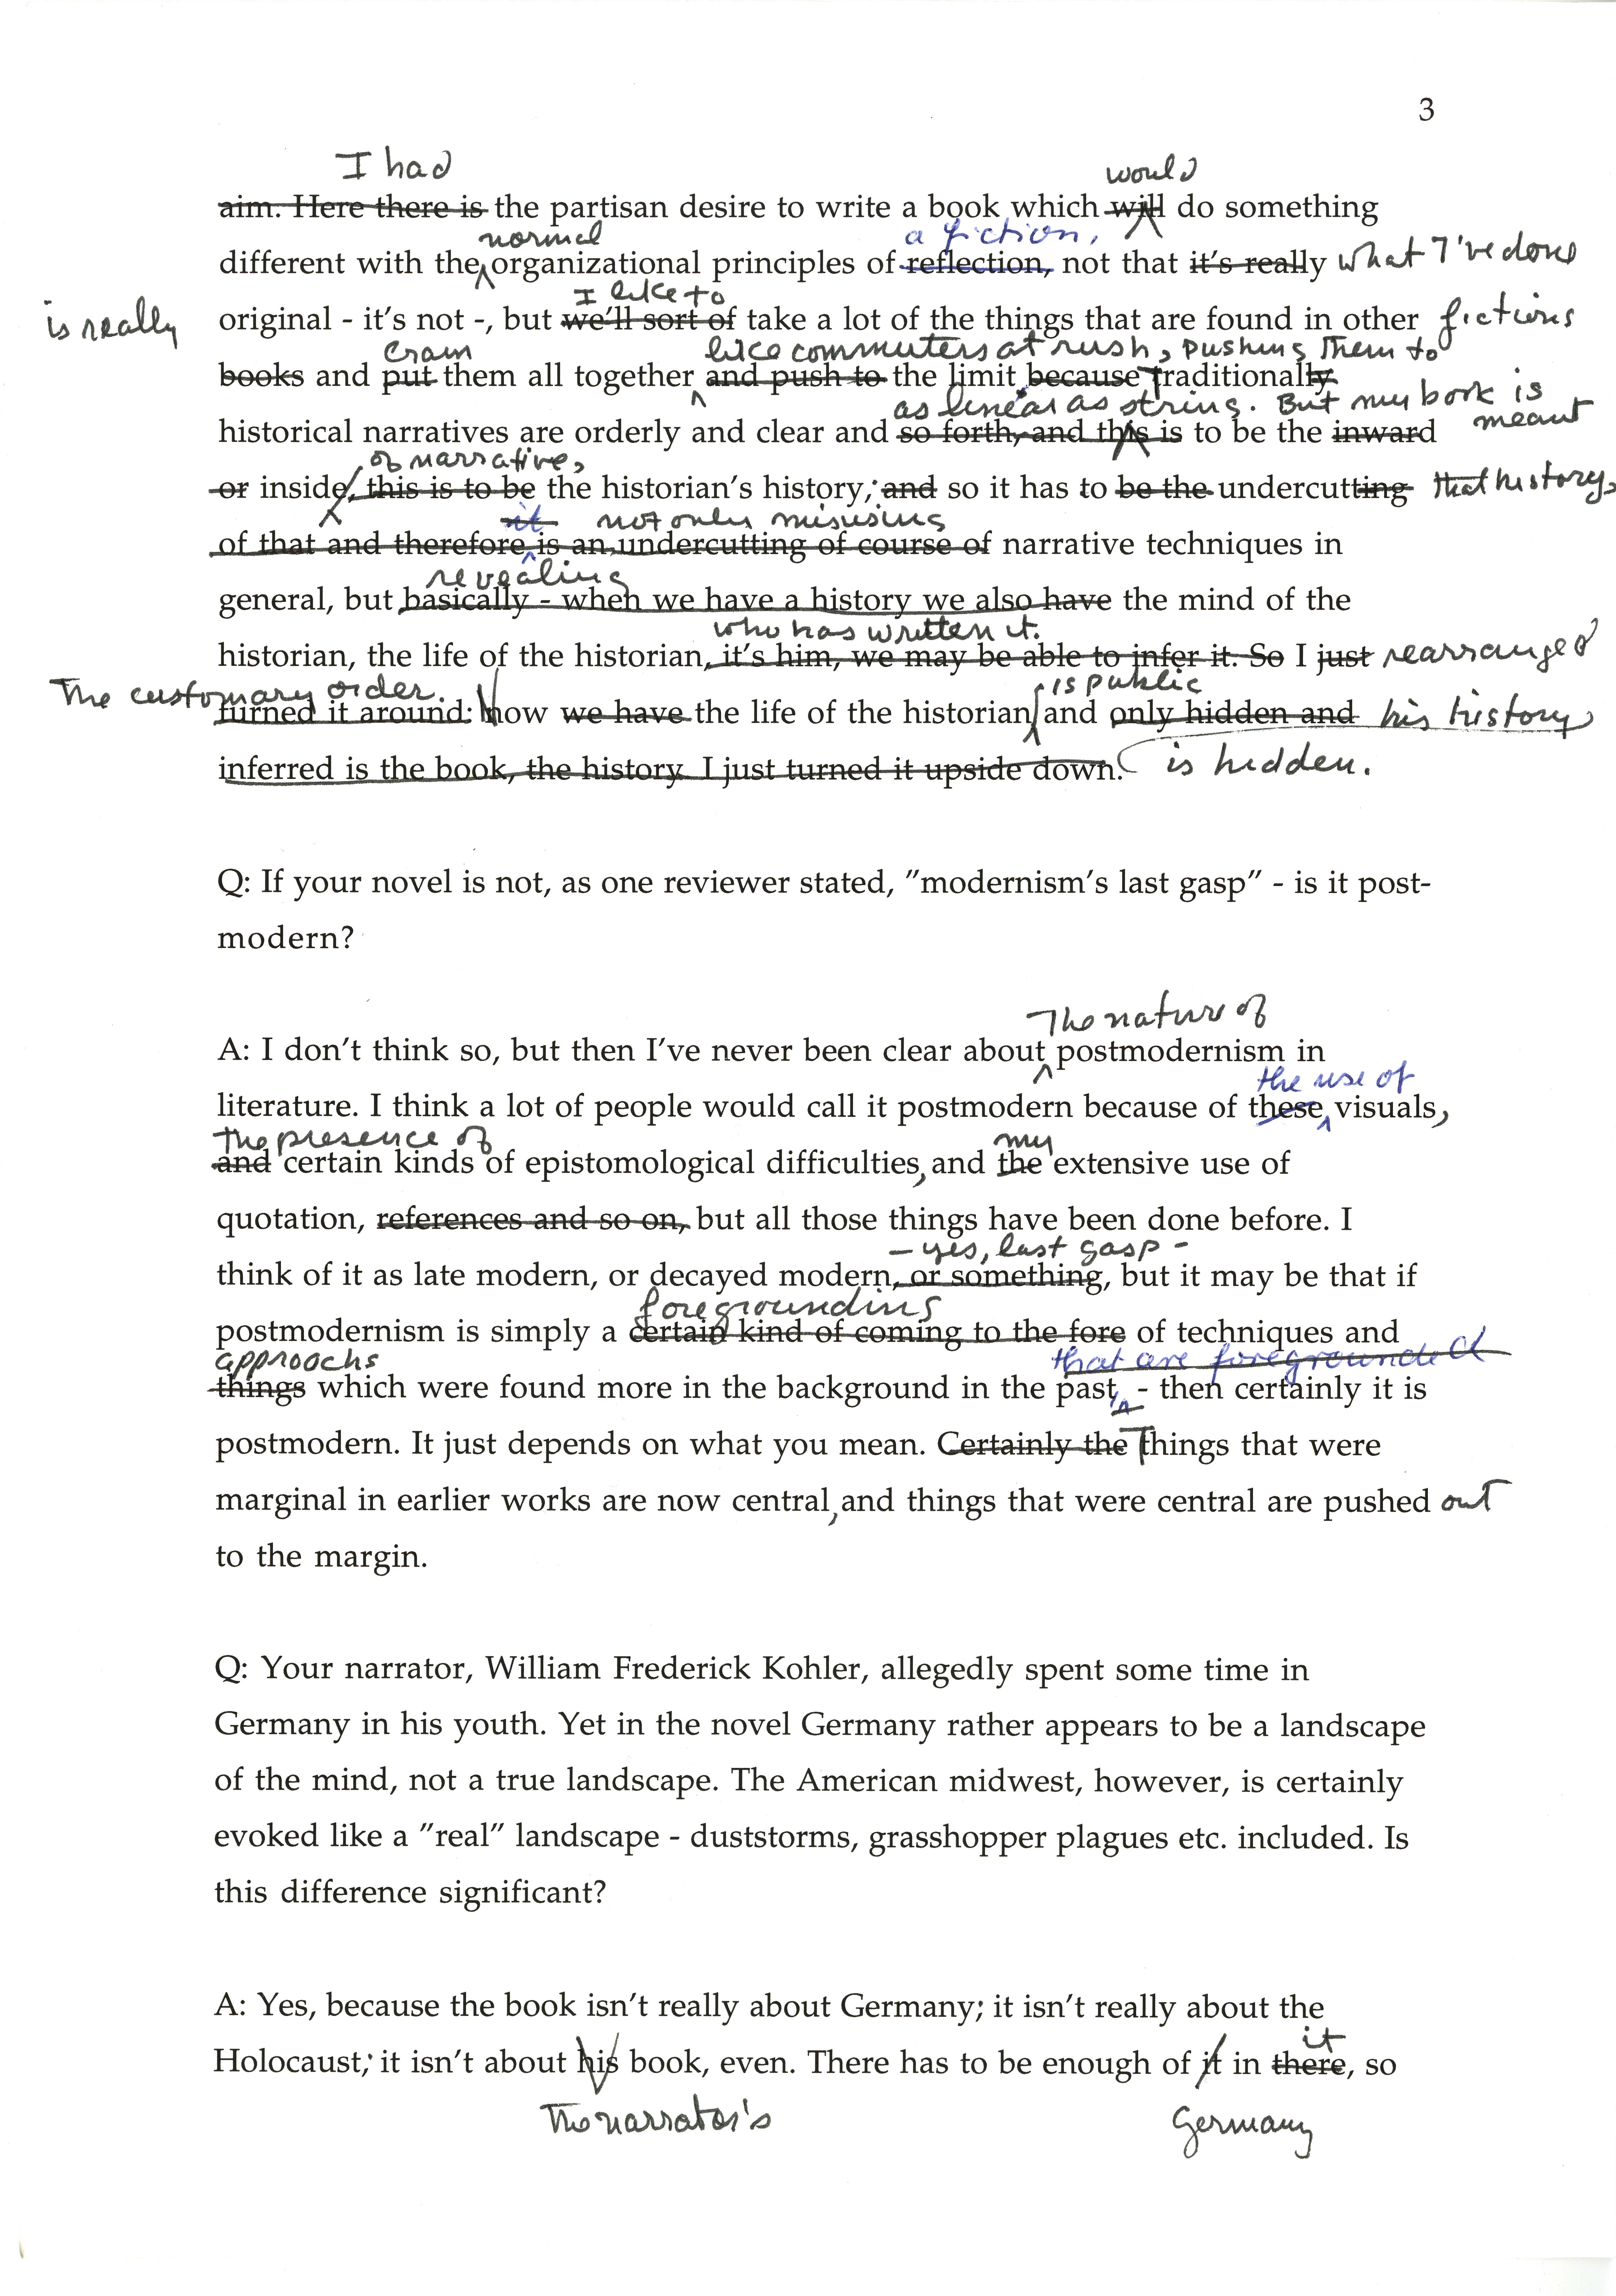 3
I had would
aim. Here there is the partisan desire to write a book which will do something
normal a fiction,
different with the organizational principles of reflection, not that it's really what I've done
I like to
is really original - it's not -, but we'll sort of take a lot of the things that are found in other fictions
cram like commuters at rush, pushing them to
books and put them all together and push to the limit because Traditionally
as linear as string. But my book is
historical narratives are orderly and clear and so forth, and this is to be the inward meant
of narrative,
or inside, this is to be the historian's history; and so it has to be the undercutting that history,
it not only misusing
of that and therefore is an undercutting of course of narrative techniques in
revealing
general, but basically - when we have a history we also have the mind of the
who has written it.
historian, the life of the historian, it's him, we may be able to infer it. So I just rearranged
The customary order. is public
turned it around: now we have the life of the historian and only hidden and his history
inferred is the book, the history. I just turned it upside down. is hidden.
Q: If your novel is not, as one reviewer stated, "modernism's last gasp" - is it post-
modern?
The nature of
A: I don't think so, but then I've never been clear about postmodernism in
the use of
literature. I think a lot of people would call it postmodern because of these visuals,
the presence of my
and certain kinds of epistomological difficulties, and the extensive use of
quotation, references and so on, but all those things have been done before. I
- yes, last gasp -
think of it as late modern, or decayed modern, or something, but it may be that if
foregrounding
postmodernism is simply a certain kind of coming to the fore of techniques and
approachs that are foregrounded
things which were found more in the background in the past, - then certainly it is
postmodern. It just depends on what you mean. Certainly the Things that were
marginal in earlier works are now central, and things that were central are pushed out
to the margin.
Q: Your narrator, William Frederick Kohler, allegedly spent some time in
Germany in his youth. Yet in the novel Germany rather appears to be a landscape
of the mind, not a true landscape. The American midwest, however, is certainly
evoked like a "real" landscape - duststorms, grasshopper plagues etc. included. Is
this difference significant?
A: Yes, because the book isn't really about Germany; it isn't really about the
it
Holocaust; it isn't about his book, even. There has to be enough of it in there, so
The narrator's Germany